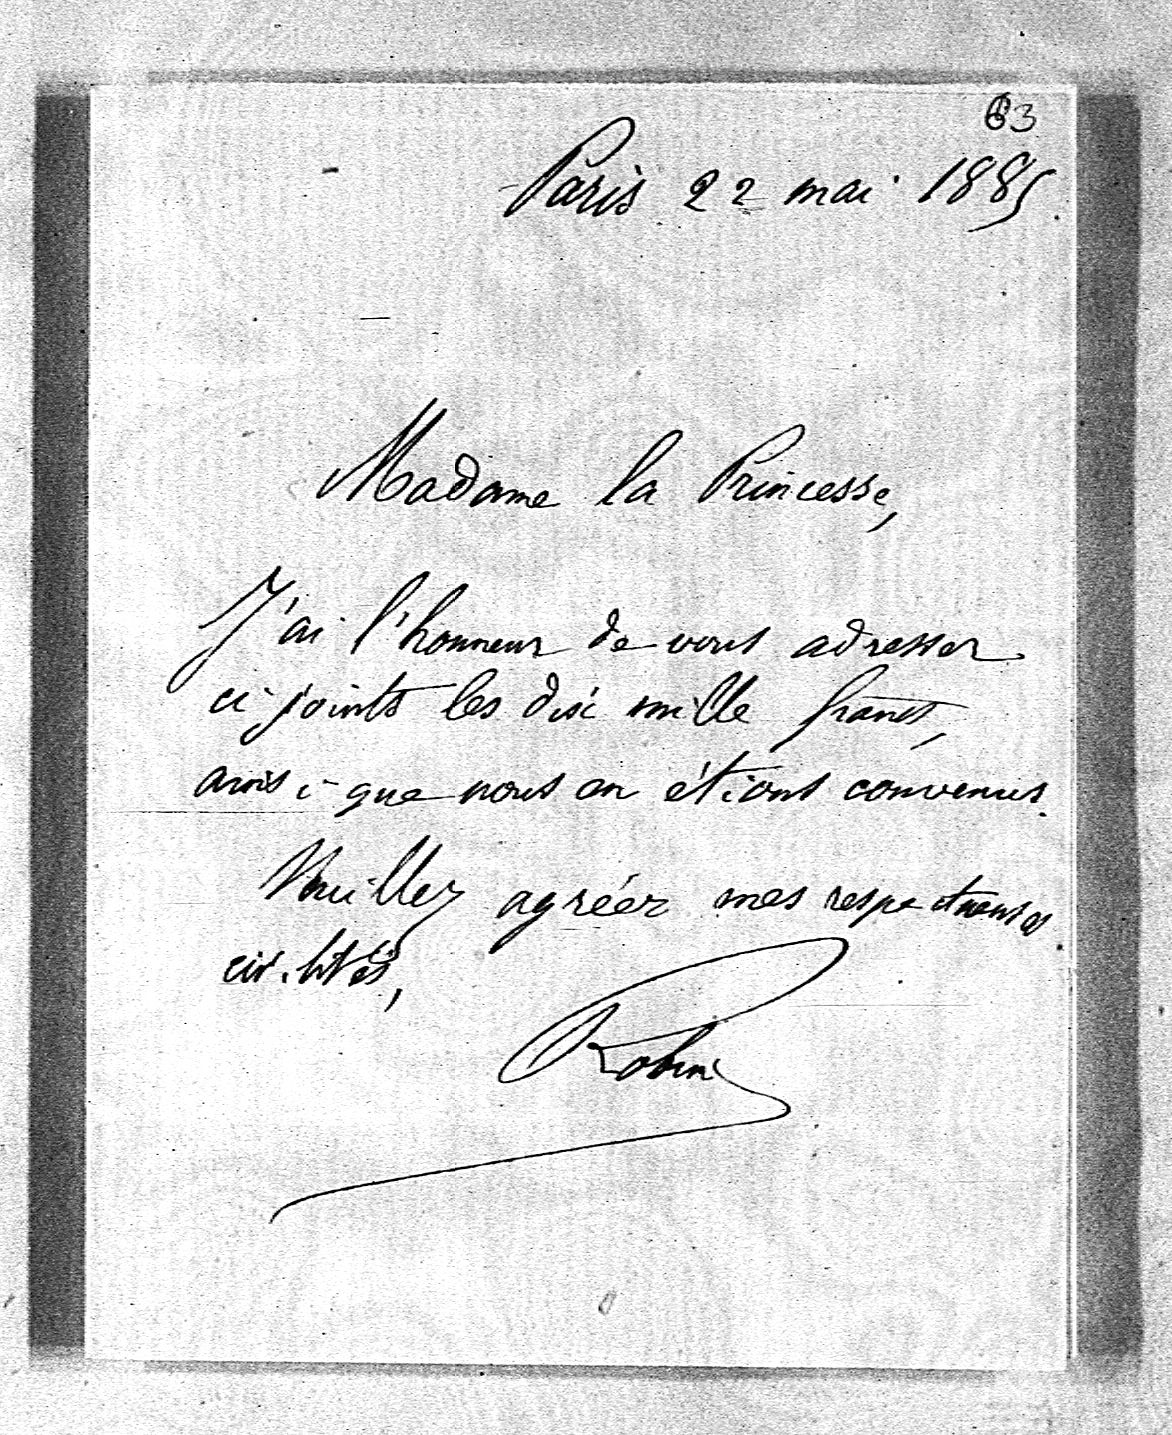 63
Paris 22 mai 1885.
Madame la Princesse,
J'ai l'honneur de vous adresser
ci joints les dix mille francs,
ainsi que nous en étions convenus.
Veuillez agréer mes respectueuses
civilités,
Robin